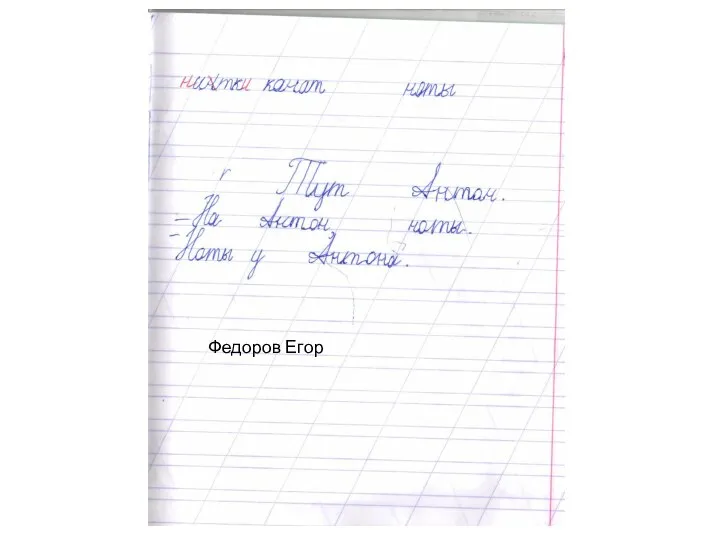 нитки канат ноты
Тут Антон.
– На Антон, ноты.
– Ноты у Антона.
Федоров Егор